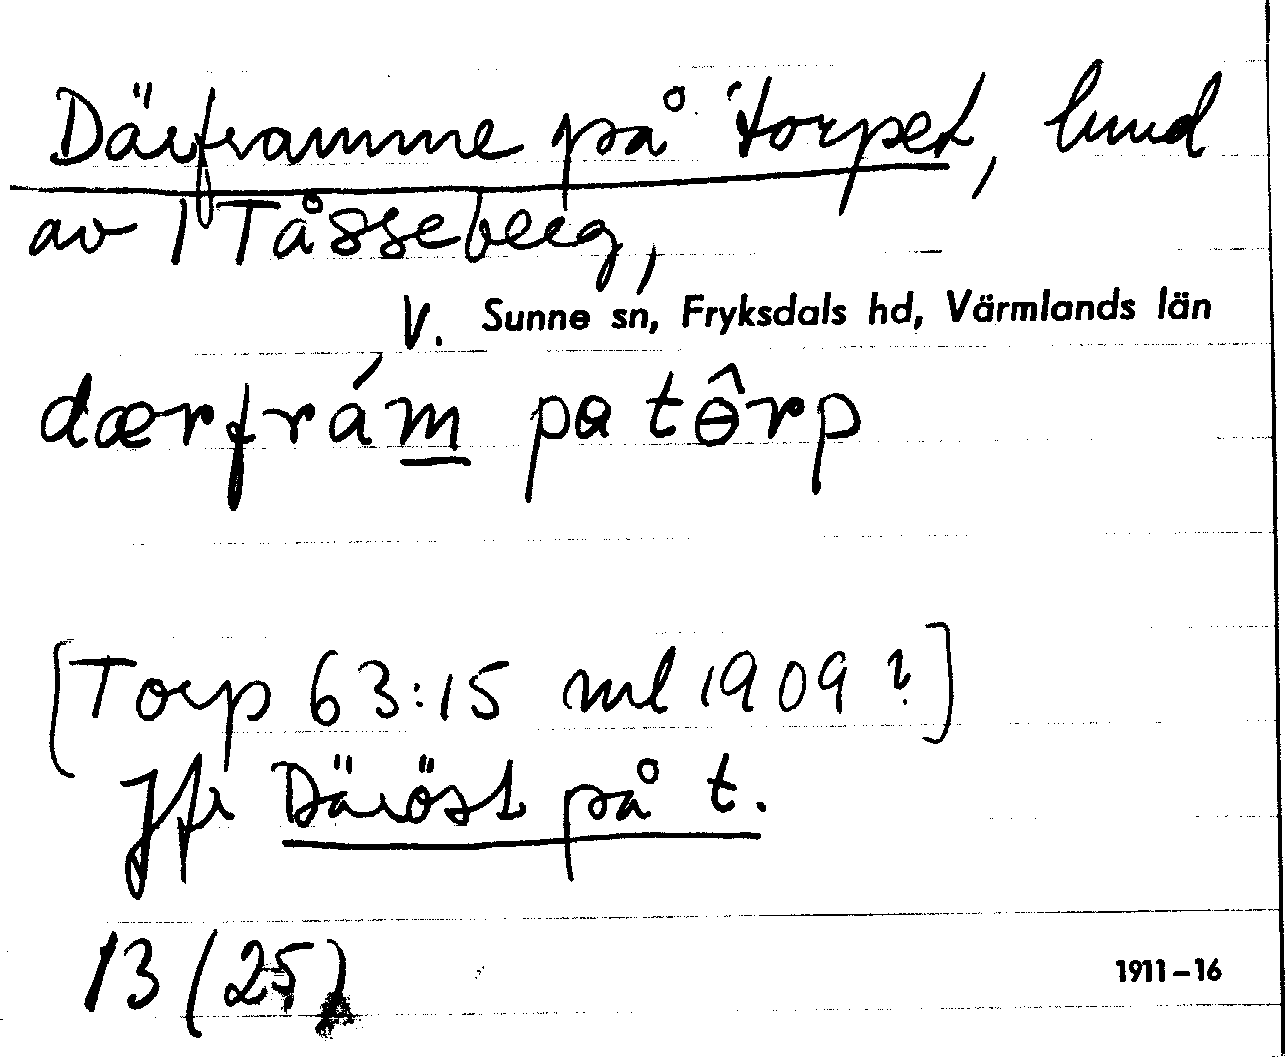 Därframme på torpet, lund
av 1 Tåsseberg,
V. Sunne sn, Fryksdals hd, Värmlands län
dærfrám pa tôrp
[Torp 63:15 ml 1909?]
Jfr Däröst på t.
13 (25)
1911–16